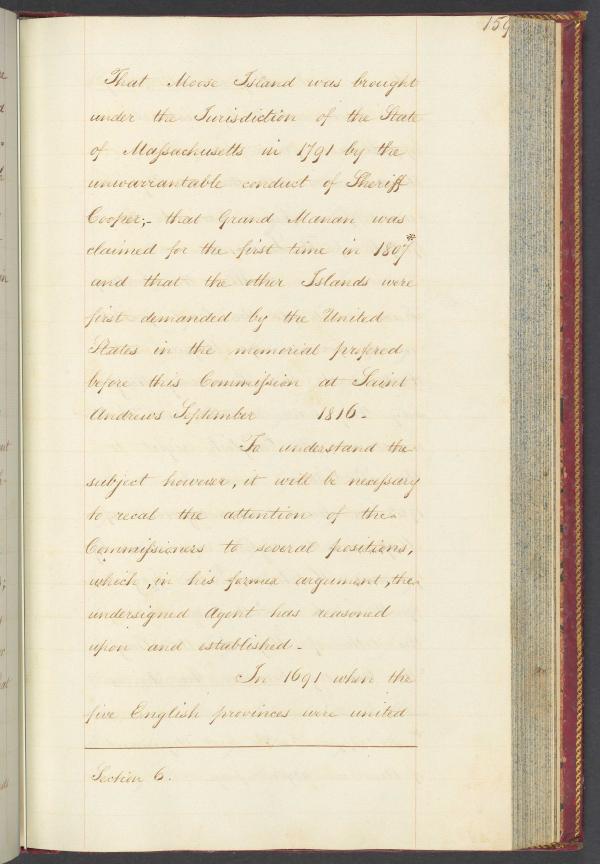 159
That Moose Island was brought
under the Jurisdiction of the State
of Maſsachusetts in 1791 by the
unwarrantable conduct of Sheriff
Cooper;- that Grand Manan was
claimed for the first time in 1807*
and that the other Islands were
first demanded by the United
States in the memorial prefered
before this Commiſsion at Saint
Andrews September 1816-
To understand the
subject however, it will be neceſsary
to recal the attention of the
Commiſsioners to several positions,
which, in his former argument, the
undersigned Agent has reasoned
upon and established-
In 1691 when the
five English provinces were united
Section 6.